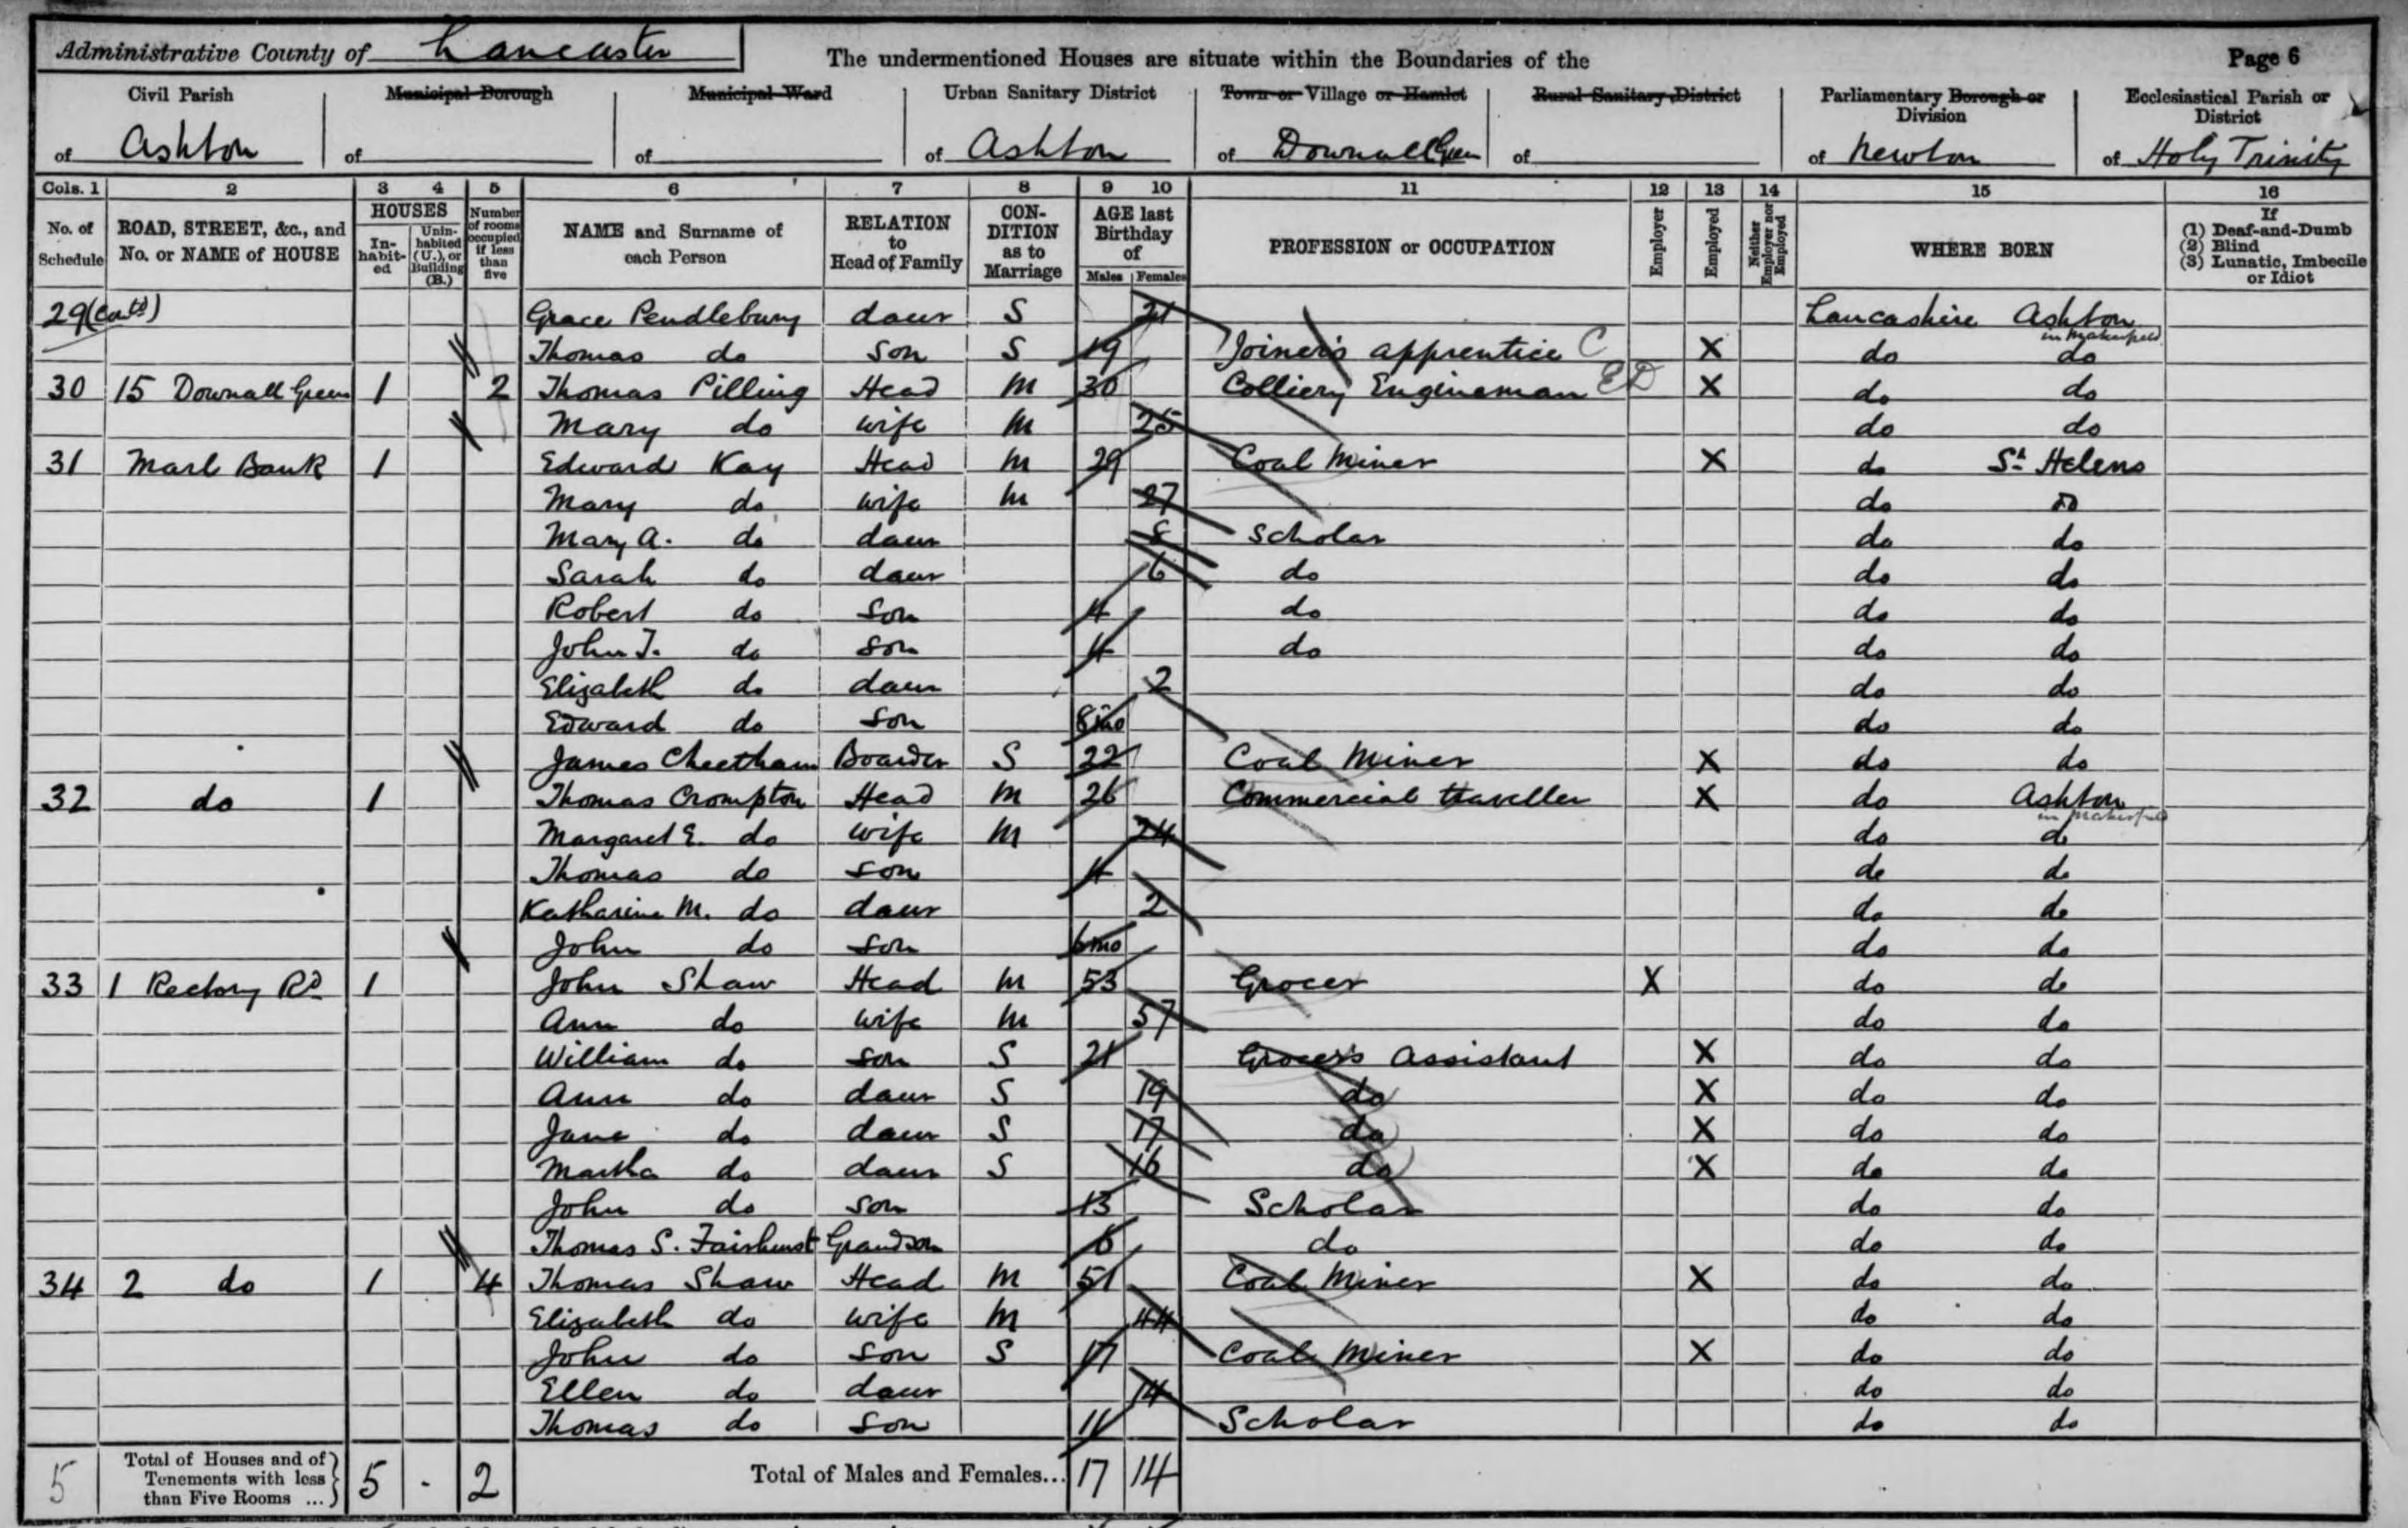 Administrative County of Lancaster The undermentioned Houses are situate within the Boundaries of the Page 6
Civil Parish Municipal Borough Municipal Ward Urban Sanitary District Town or Village or Hamlet Rural Sanitary District Parliamentary Borough or Division Ecclesiastical Parish or District
of Ashton of of of Ashton of Downall Green of of Newton of Holy Trinity
Cols. 1 2 3 4 5 6 7 8 9 10 11 12 13 14 15 16
No. of Schedule ROAD, STREET, &c., and No. or NAME of HOUSE HOUSES In-habit-ed Unin-habited (U.), or Building (B.) Number of rooms occupied if less than five NAME and Surname of each Person RELATION to Head of Family CON-DITION as to Marriage AGE last Birthday of Males Females PROFESSION or OCCUPATION Employer Employed Neither Employer nor Employed WHERE BORN If (1) Deaf-and-Dumb (2) Blind (3) Lunatic, Imbecile or Idiot
29 (contd) Grace Pendlebury daur S 21 Lancashire Ashton in Makerfield
Thomas do Son S 19 Joiner's apprentice C X do do
30 15 Downall Green 1 2 Thomas Pilling Head M 30 Colliery Engineman ED X do do
Mary do wife M 25 do do
31 Marl Bank 1 Edward Kay Head M 29 Coal Miner X do St Helens
Mary do wife M 27 do Do
Mary A. do daur 8 Scholar do do
Sarah do daur 6 do do do
Robert do Son 4 do do do
John T. do Son 4 do do do
Elizabeth do daur 2 do do
Edward do Son 8mo do do
James Cheetham Boarder S 22 Coal Miner X do do
32 do 1 Thomas Crompton Head M 26 Commercial traveller X do Ashton in Makerfield
Margaret E. do wife M 24 do do
Thomas do Son 4 do do
Katharine M. do daur 2 do do
John do Son 6mo do do
33 1 Rectory Rd 1 John Shaw Head M 53 Grocer X do do
Ann do wife M 57 do do
William do Son S 21 Grocer's Assistant X do do
Ann do daur S 19 do X do do
Jane do daur S 17 do X do do
Martha do daur S 16 do X do do
John do Son 13 Scholar do do
Thomas S. Fairhurst Grandson 6 do do do
34 2 do 1 4 Thomas Shaw Head M 51 Coal Miner X do do
Elizabeth do wife M 44 do do
John do Son S 17 Coal Miner X do do
Ellen do daur 14 do do
Thomas do Son 11 Scholar do do
5 Total of Houses and of Tenements with less than Five Rooms ... 5 - 2 Total of Males and Females... 17 14